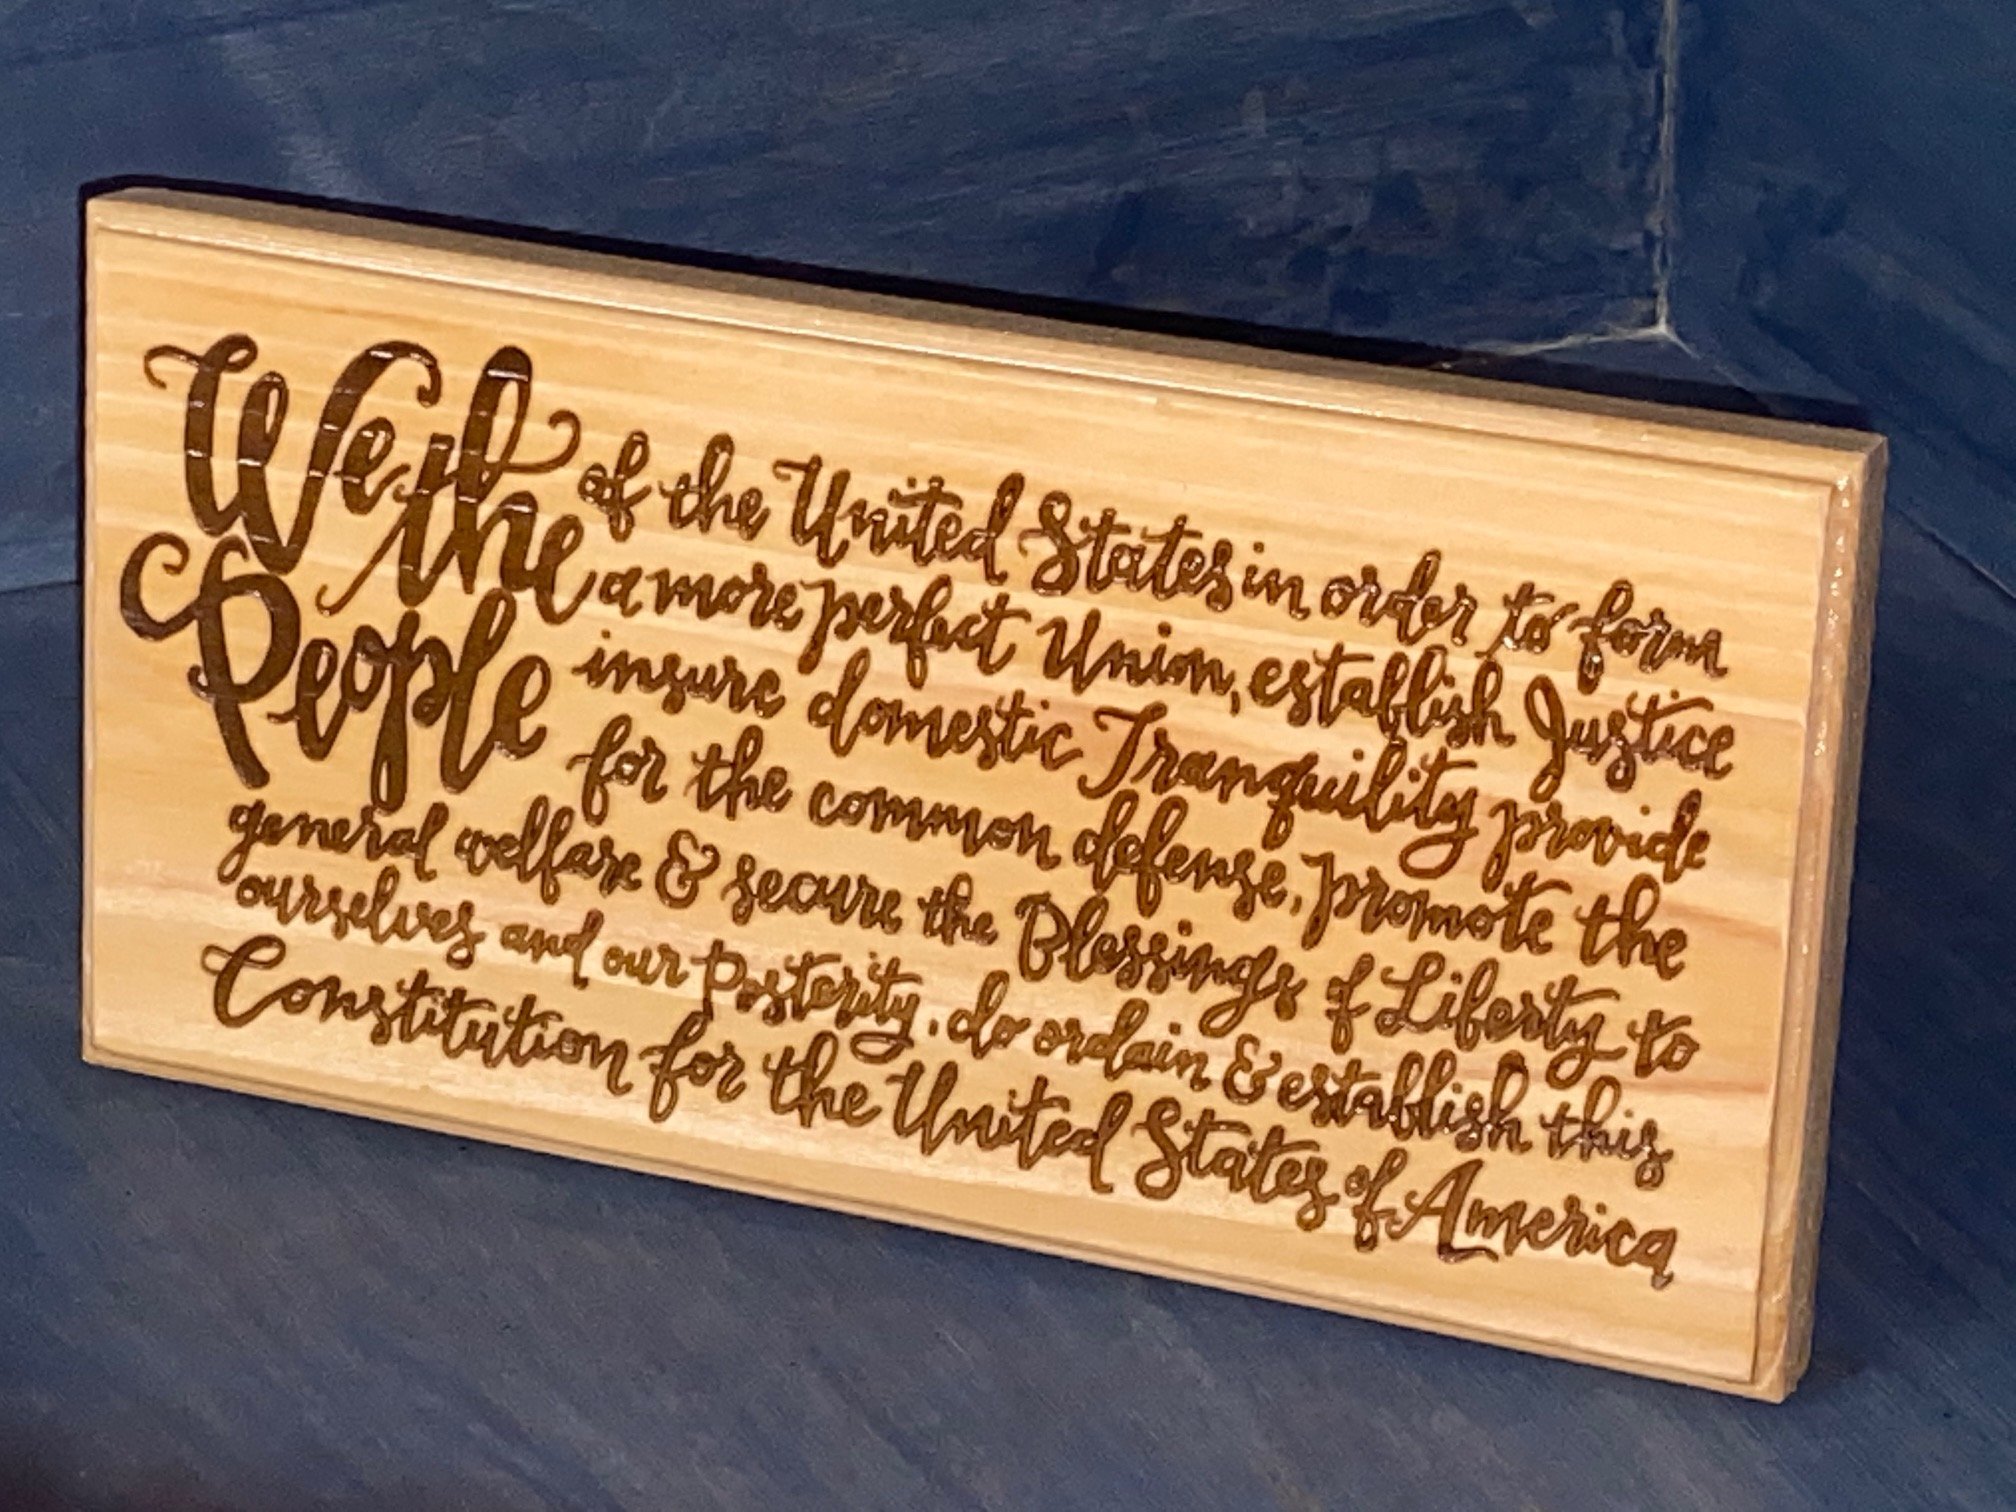 We the People
of the United States in order to form
a more perfect Union, establish Justice
insure domestic Tranquility provide
for the common defense, promote the
general welfare & secure the Blessings of Liberty to
ourselves and our Posterity, do ordain & establish this
Constitution for the United States of America